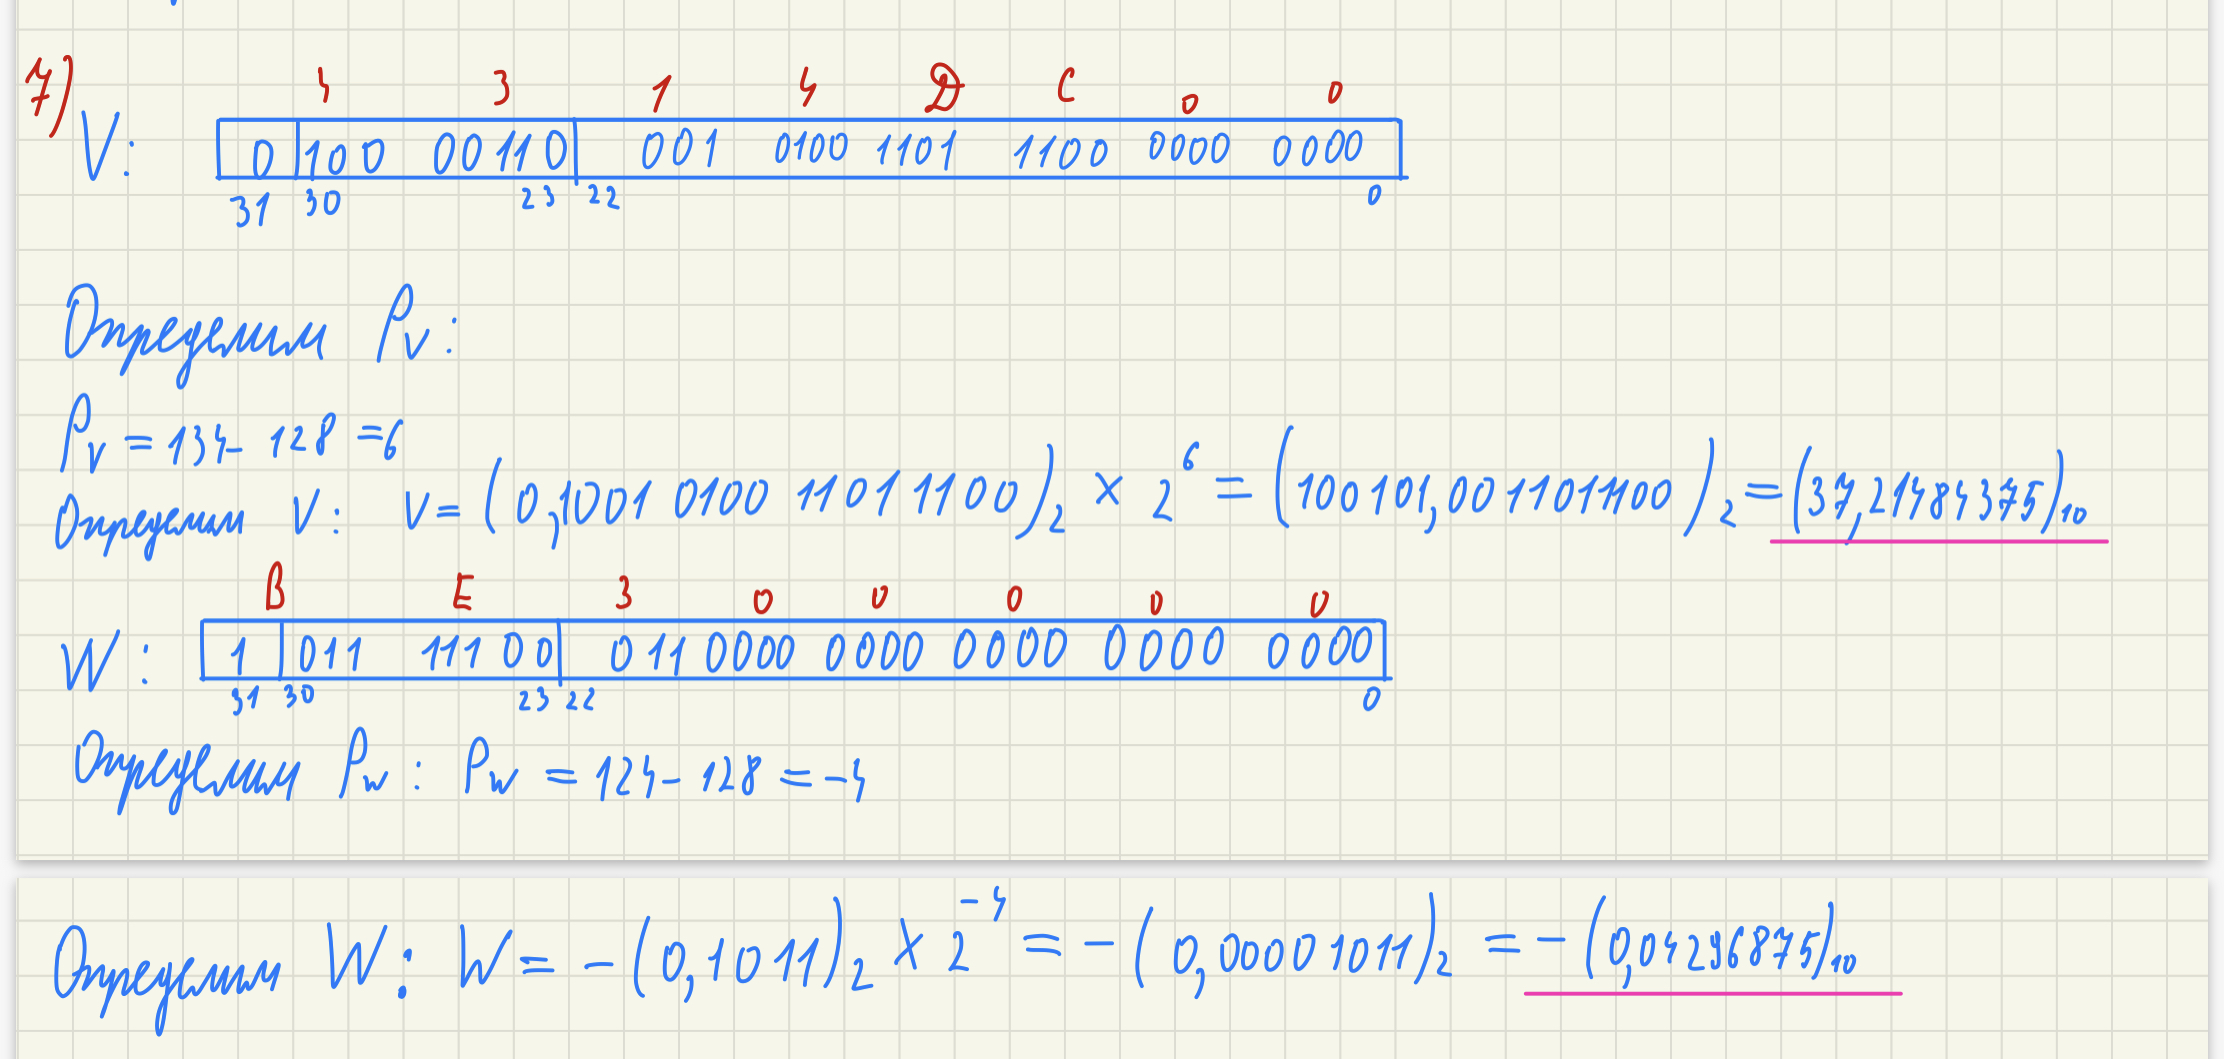 7)
4 3 1 4 D C 0 0
V: 0 100 00110 001 0100 1101 1100 0000 0000
31 30 23 22 0
Определим Pv:
Pv = 134 - 128 = 6
Определим V: V = (0,1001 0100 1101 1100)2 × 2^6 = (100101,0011011100)2 = (37,21484375)10
B E 3 0 0 0 0 0
W: 1 011 11100 011 0000 0000 0000 0000 0000
31 30 23 22 0
Определим Pw: Pw = 124 - 128 = -4
Определим W: W = -(0,1011)2 × 2^-4 = -(0,00001011)2 = -(0,04296875)10